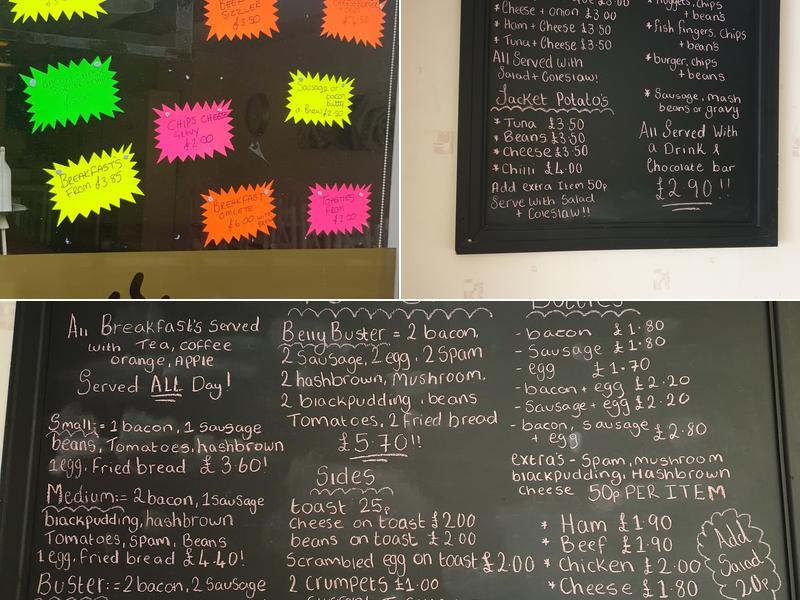 BEEF
SIZZLER
£3.50
Sausage or
bacon
butty
a Brew £2.50
CHIPS CHEESE
GRAVY
£2.00
BREAKFAST'S
FROM £3.85
BREAKFAST
OMLETE
£6.00 WITH
TOASTIES
FROM
£2.00
* Cheese + onion £3.00
* Ham + Cheese £3.50
* Tuna + Cheese £3.50
All Served With
Salad + Coleslaw!
Jacket Potato's
* Tuna £3.50
* Beans £3.50
* Cheese £3.50
* Chilli £4.00
Add extra Item 50p
Serve With Salad
+ Coleslaw!!
* nuggets, chips
+ beans
* fish fingers, chips
+ beans
* burger, chips
+ beans
* Sausage, mash
beans or gravy
All Served With
a Drink &
Chocolate bar
£2.90!!
All Breakfast's Served
with Tea, coffee
orange, APPLE
Served ALL Day!
Small:= 1 bacon, 1 sausage
beans, Tomatoes, hashbrown
1 egg, Fried bread £3.60!
Medium:= 2 bacon, 1 Sausage
blackpudding, hashbrown
Tomatoes, Spam, Beans
1 egg, Fried bread £4.40!
Buster:= 2 bacon, 2 Sausage
Belly Buster = 2 bacon,
2 Sausage, 2 egg, 2 Spam
2 hashbrown, Mushroom,
2 blackpudding, beans
Tomatoes, 2 Fried bread
£5.70!!
Sides
toast 25p
cheese on toast £2.00
beans on toast £2.00
Scrambled egg on toast £2.00
2 crumpets £1.00
Butties
- bacon £1.80
- Sausage £1.80
- egg £1.70
- bacon + egg £2.20
- Sausage + egg £2.20
- bacon, sausage
+ egg £2.80
extra's - Spam, mushroom
blackpudding, Hashbrown
cheese 50p PER ITEM
* Ham £1.90
* Beef £1.90
* Chicken £2.00
* Cheese £1.80
Add
Salad
20p